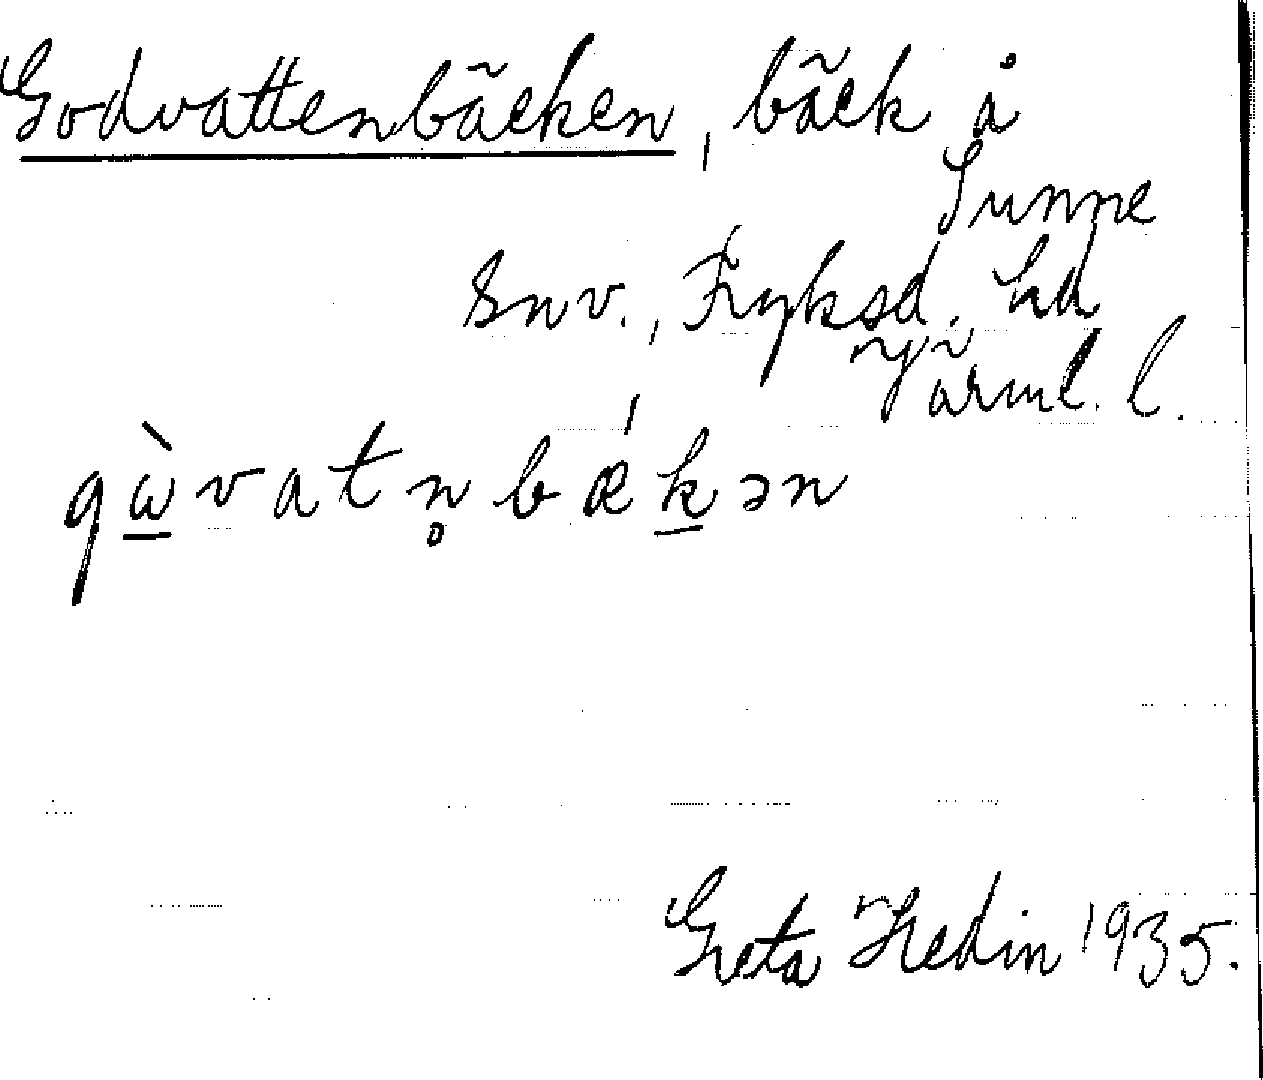 Godvattenbäcken, bäck å
Sunne
snv., Fryksd. hd
Värml. l.
gὼ̲vatn̥bǽk̲ən
Greta Hedin 1935.